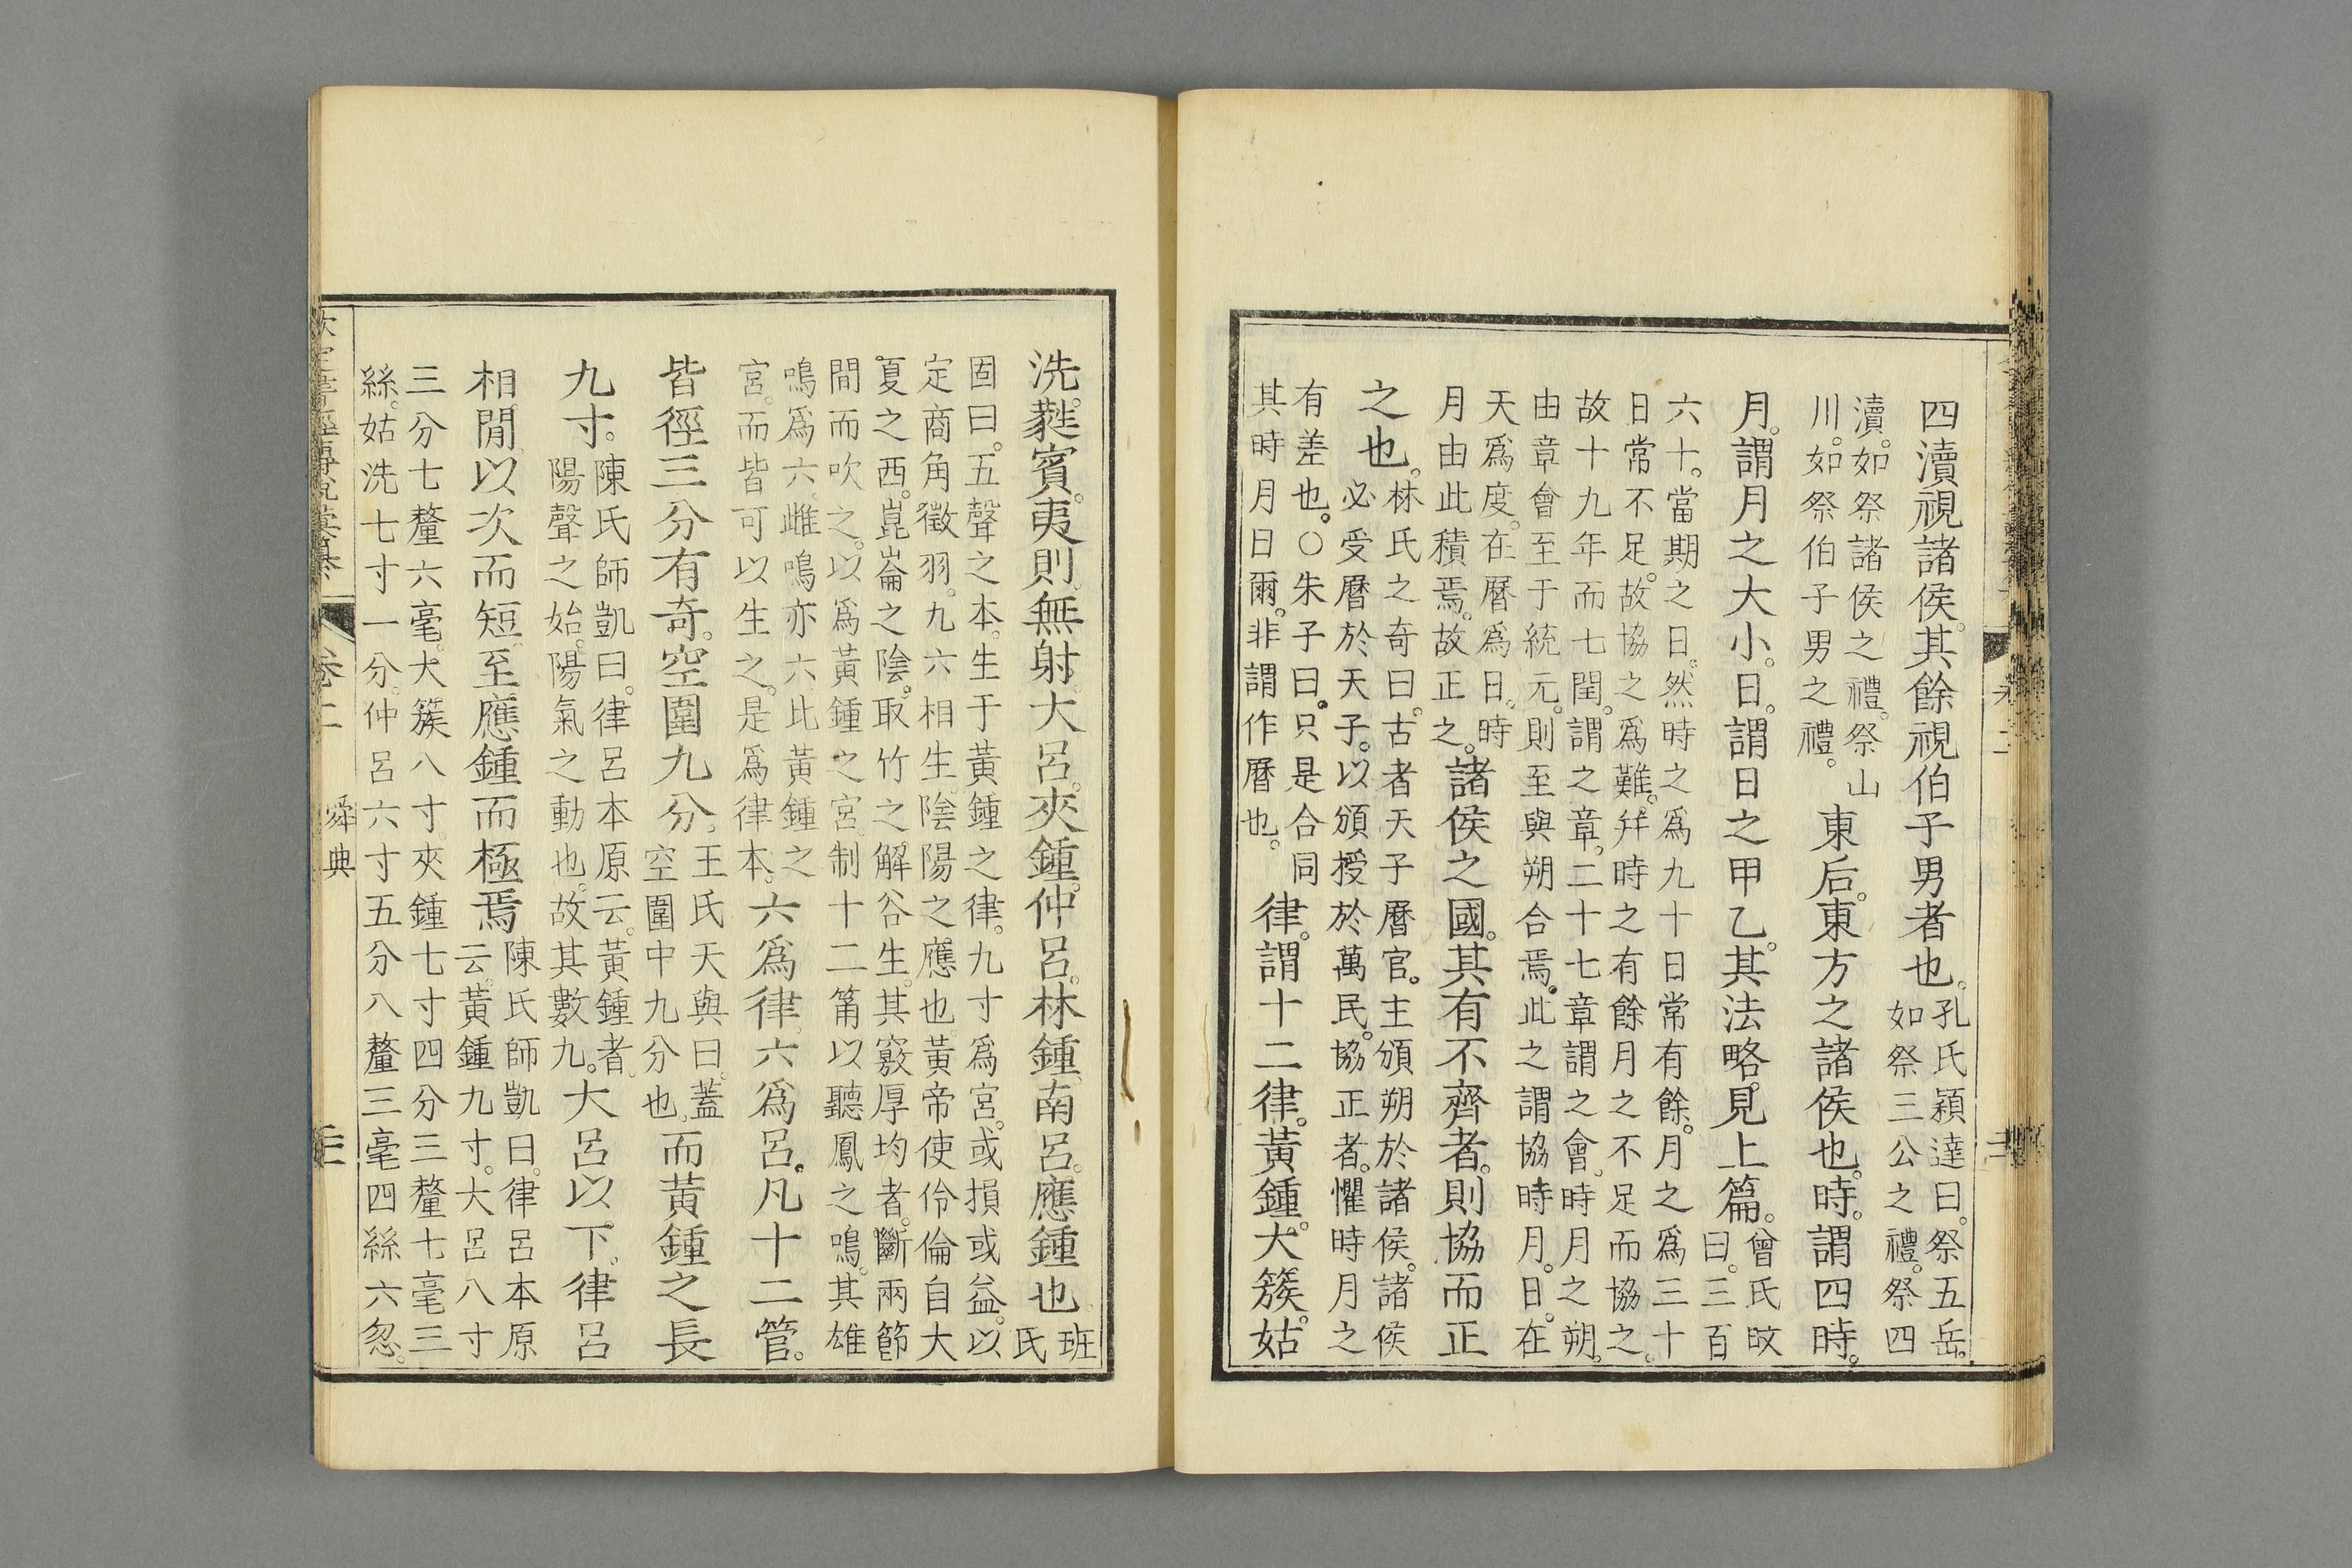 四瀆視諸侯。其餘視伯子男者也。孔氏穎達曰。祭五岳。
如祭三公之禮。祭四
瀆。如祭諸侯之禮。祭山
川。如祭伯子男之禮。東后。東方之諸侯也。時。謂四時。
月。謂月之大小。日。謂日之甲乙。其法略見上篇。曾氏旼
曰。三百
六十。當期之日。然時之爲九十日常有餘。月之爲三十
日常不足。故協之爲難。幷時之有餘月之不足而協之。
故十九年而七閏。謂之章。二十七章謂之會。時月之朔。
由章會至于統元。則至與朔合焉。此之謂協時月。日。在
天爲度。在曆爲日。時
月由此積焉。故正之。諸侯之國。其有不齊者。則協而正
之也。林氏之奇曰。古者天子曆官。主頒朔於諸侯。諸侯
必受曆於天子。以頒授於萬民。協正者。懼時月之
有差也。○朱子曰。只是合同
其時月日爾。非謂作曆也。律。謂十二律。黃鍾。大簇。姑
洗。蕤賓。夷則。無射。大呂。夾鍾。仲呂。林鍾。南呂。應鍾也班
氏
固曰。五聲之本。生于黃鍾之律。九寸爲宮。或損或益。以
定商角徵羽。九六相生。陰陽之應也。黃帝使伶倫自大
夏之西。崑崙之陰。取竹之解谷生。其竅厚均者。斷兩節
間而吹之。以爲黃鍾之宮。制十二筩以聽鳳之鳴。其雄
鳴爲六。雌鳴亦六比黃鍾之
宮。而皆可以生之。是爲律本。六爲律。六爲呂。凡十二管。
皆徑三分有奇。空圍九分。王氏天與曰。蓋
空圍中九分也。而黃鍾之長
九寸。陳氏師凱曰。律呂本原云。黃鍾者。
陽聲之始。陽氣之動也。故其數九。大呂以下。律呂
相閒。以次而短。至應鍾而極焉陳氏師凱曰。律呂本原
云。黃鍾九寸。大呂八寸
三分七釐六毫。大簇八寸。夾鍾七寸四分三釐七毫三
絲。姑洗七寸一分。仲呂六寸五分八釐三毫四絲六忽。
卷二 舜典